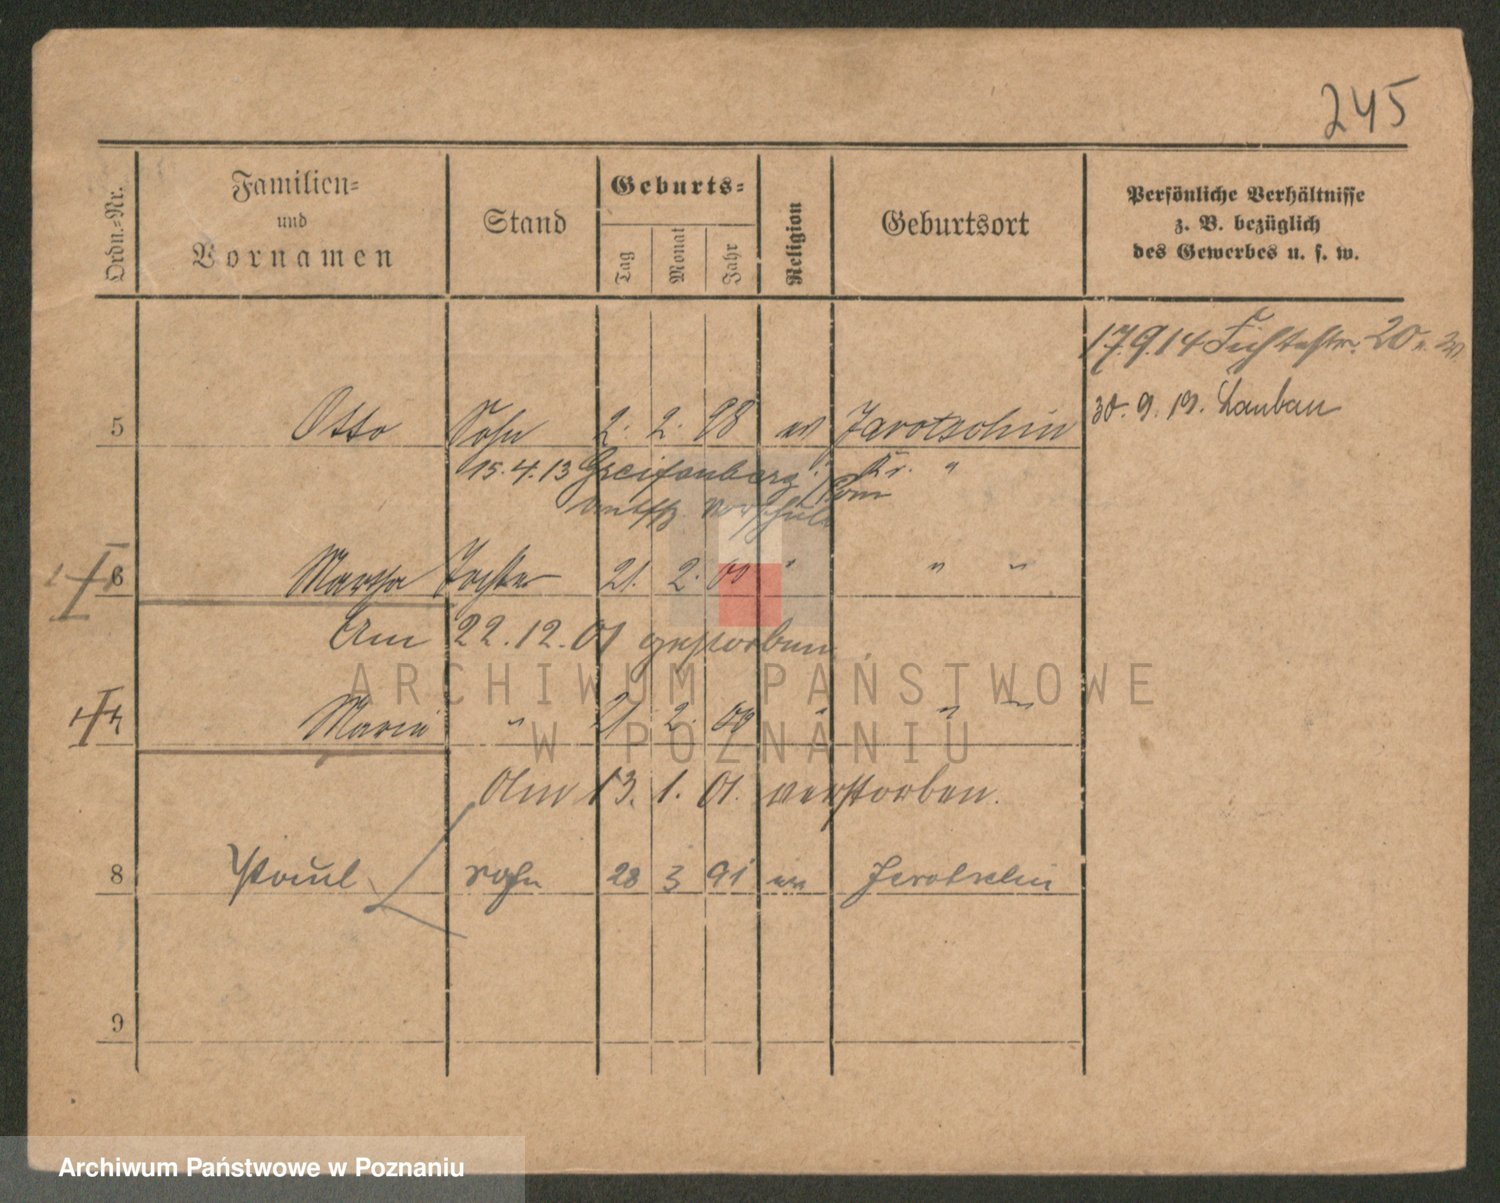 245
Ordn.-Nr.
Familien-
und
Vornamen
Stand
Geburts-
Tag
Monat
Jahr
Religion
Geburtsort
Persönliche Verhältnisse
z. B. bezüglich
des Gewerbes u. s. w.
17.9.14 Fichtestr. 20
30. 9. 19. Lauban
5 Otto Sohn 2. 2. 98 ev Jarotschin
15.4.13 Greifenberg i/Pom Kr. "
6 Martha Tochter 21. 2. 00 " " "
Am 22.12.01 gestorben
7 Marie " 21. 2. 00 " " "
Am 13. 1. 01. verstorben.
8 Paul Sohn 28 3 91 ev Jarotschin
9
ARCHIWUM PAŃSTWOWE
W POZNANIU
Archiwum Państwowe w Poznaniu